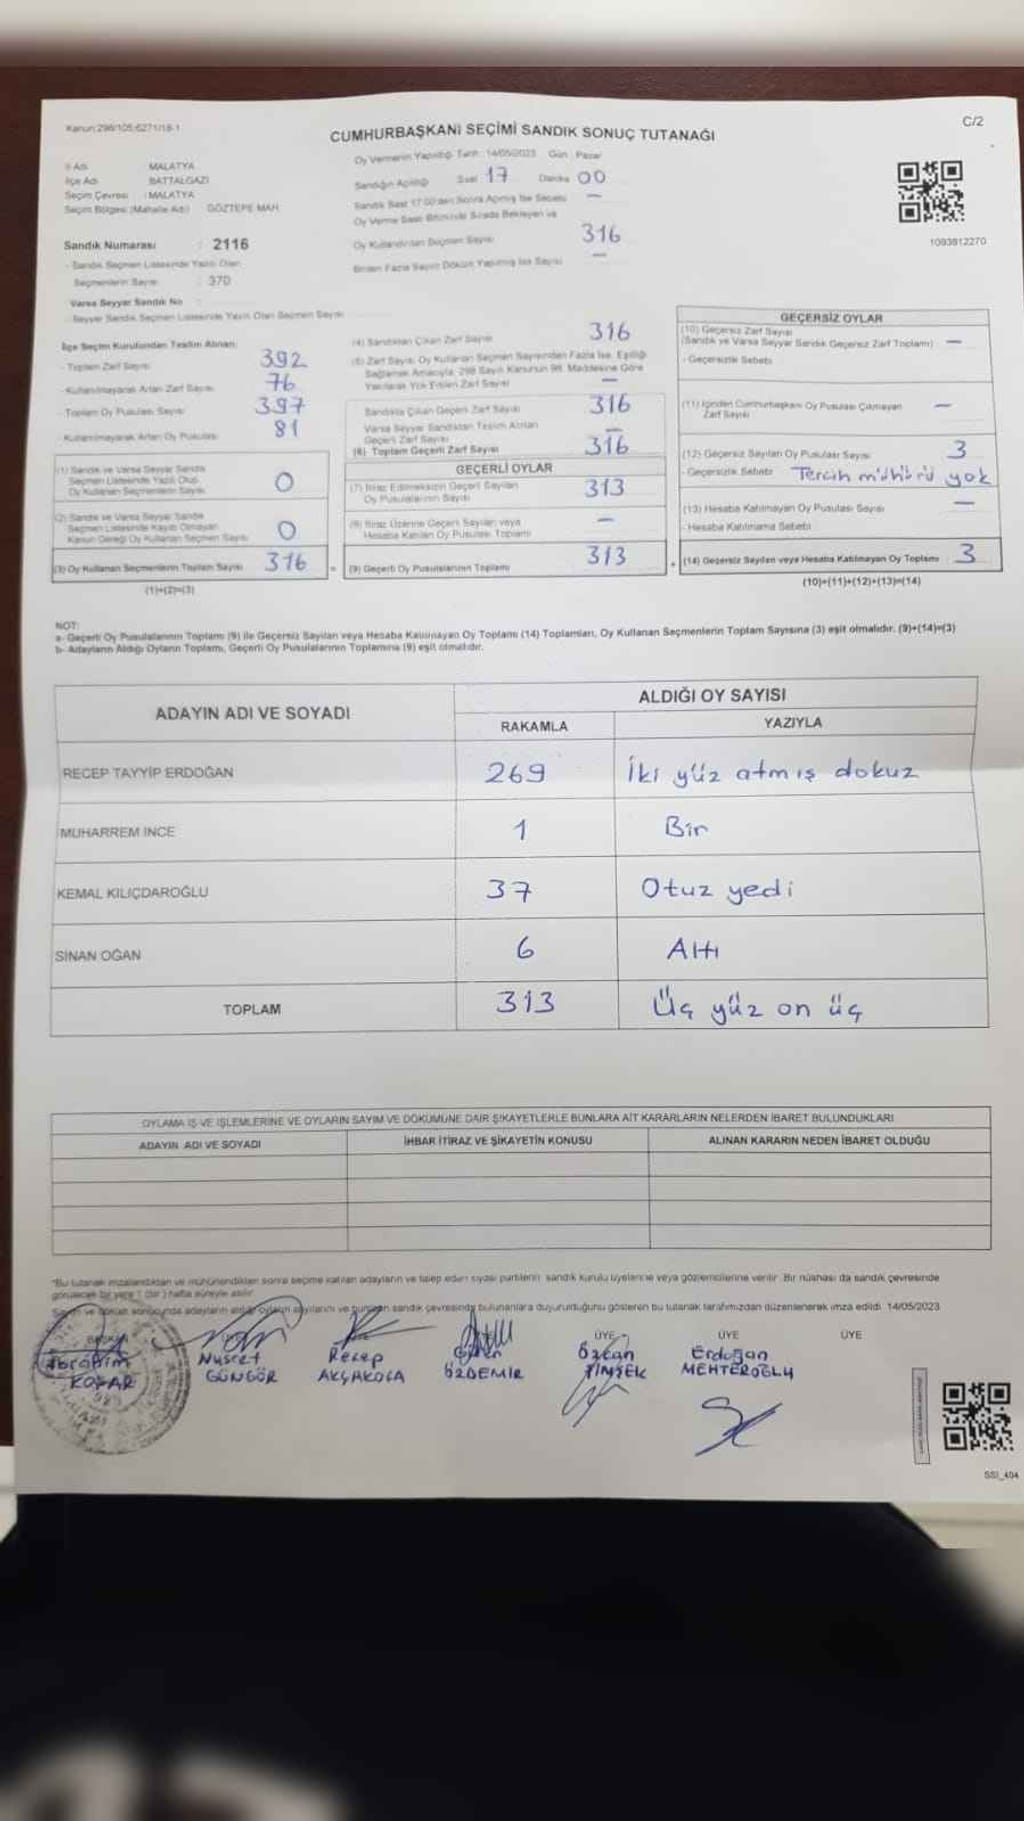 Kanun:298/105,6271/18-1
C/2
CUMHURBAŞKANI SEÇİMİ SANDIK SONUÇ TUTANAĞI
İl Adı MALATYA
İlçe Adı BATTALGAZİ
Seçim Çevresi : MALATYA
Seçim Bölgesi (Mahalle Adı) GÖZTEPE MAH.
Oy Vermenin Yapıldığı Tarih : 14/05/2023 Gün : Pazar
Sandığın Açıldığı Saat 17 Dakika 00
Sandık Saat 17:00'den Sonra Açılmış İse Sebebi —
Oy Verme Saati Bitiminde Sırada Bekleyen ve
Oy Kullandırılan Seçmen Sayısı 316
Birden Fazla Sayım Döküm Yapılmış İse Sayısı —
1093812270
Sandık Numarası : 2116
- Sandık Seçmen Listesinde Yazılı Olan
Seçmenlerin Sayısı : 370
Varsa Seyyar Sandık No :
- Seyyar Sandık Seçmen Listesinde Yazılı Olan Seçmen Sayısı
İlçe Seçim Kurulundan Teslim Alınan:
- Toplam Zarf Sayısı 392
- Kullanılmayarak Artan Zarf Sayısı 76
- Toplam Oy Pusulası Sayısı 397
- Kullanılmayarak Artan Oy Pusulası 81
(1) Sandık ve Varsa Seyyar Sandık
Seçmen Listesinde Yazılı Olup
Oy Kullanan Seçmenlerin Sayısı 0
(2) Sandık ve Varsa Seyyar Sandık
Seçmen Listesinde Kayıtlı Olmayan
Kanun Gereği Oy Kullanan Seçmen Sayısı 0
(3) Oy Kullanan Seçmenlerin Toplam Sayısı 316
(1)+(2)=(3)
(4) Sandıktan Çıkan Zarf Sayısı 316
(5) Zarf Sayısı, Oy Kullanan Seçmen Sayısından Fazla İse, Eşitliği
Sağlamak Amacıyla, 298 Sayılı Kanunun 98. Maddesine Göre
Yakılarak Yok Edilen Zarf Sayısı —
Sandıkta Çıkan Geçerli Zarf Sayısı 316
Varsa Seyyar Sandıktan Teslim Alınan
Geçerli Zarf Sayısı —
(6) Toplam Geçerli Zarf Sayısı 316
GEÇERLİ OYLAR
(7) İtiraz Edilmeksizin Geçerli Sayılan
Oy Pusulalarının Sayısı 313
(8) İtiraz Üzerine Geçerli Sayılan veya
Hesaba Katılan Oy Pusulası Toplamı —
(9) Geçerli Oy Pusulalarının Toplamı 313
GEÇERSİZ OYLAR
(10) Geçersiz Zarf Sayısı
(Sandık ve Varsa Seyyar Sandık Geçersiz Zarf Toplamı) —
- Geçersizlik Sebebi
(11) İçinden Cumhurbaşkanı Oy Pusulası Çıkmayan
Zarf Sayısı —
(12) Geçersiz Sayılan Oy Pusulası Sayısı 3
- Geçersizlik Sebebi Tercih mühürü yok
(13) Hesaba Katılmayan Oy Pusulası Sayısı —
- Hesaba Katılmama Sebebi
(14) Geçersiz Sayılan veya Hesaba Katılmayan Oy Toplamı 3
(10)+(11)+(12)+(13)=(14)
NOT:
a- Geçerli Oy Pusulalarının Toplamı (9) ile Geçersiz Sayılan veya Hesaba Katılmayan Oy Toplamı (14) Toplamları, Oy Kullanan Seçmenlerin Toplam Sayısına (3) eşit olmalıdır. (9)+(14)=(3)
b- Adayların Aldığı Oyların Toplamı, Geçerli Oy Pusulalarının Toplamına (9) eşit olmalıdır.
ADAYIN ADI VE SOYADI
ALDIĞI OY SAYISI
RAKAMLA YAZIYLA
RECEP TAYYİP ERDOĞAN 269 İki yüz atmış dokuz
MUHARREM İNCE 1 Bir
KEMAL KILIÇDAROĞLU 37 Otuz yedi
SİNAN OĞAN 6 Altı
TOPLAM 313 Üç yüz on üç
OYLAMA İŞ VE İŞLEMLERİNE VE OYLARIN SAYIM VE DÖKÜMÜNE DAİR ŞİKAYETLERLE BUNLARA AİT KARARLARIN NELERDEN İBARET BULUNDUKLARI
ADAYIN ADI VE SOYADI İHBAR İTİRAZ VE ŞİKAYETİN KONUSU ALINAN KARARIN NEDEN İBARET OLDUĞU
*Bu tutanak imzalandıktan ve mühürlendikten sonra seçime katılan adayların ve talep eden siyasi partilerin sandık kurulu üyelerine veya gözlemcilerine verilir. Bir nüshası da sandık çevresinde
görülecek bir yere 1 (bir) hafta süreyle asılır.
Sayım ve döküm sonucunda adayların aldığı oyların sayılarını ve bunların sandık çevresinde bulunanlara duyurulduğunu gösteren bu tutanak tarafımızdan düzenlenerek imza edildi. 14/05/2023
BAŞKAN ÜYE ÜYE ÜYE
İbrahim Nusret Recep Özcan Erdoğan
KOPAR GÜNGÖR AKÇAKOCA ÖZDEMİR ŞİMŞEK MEHTEROĞLU
SSI_404